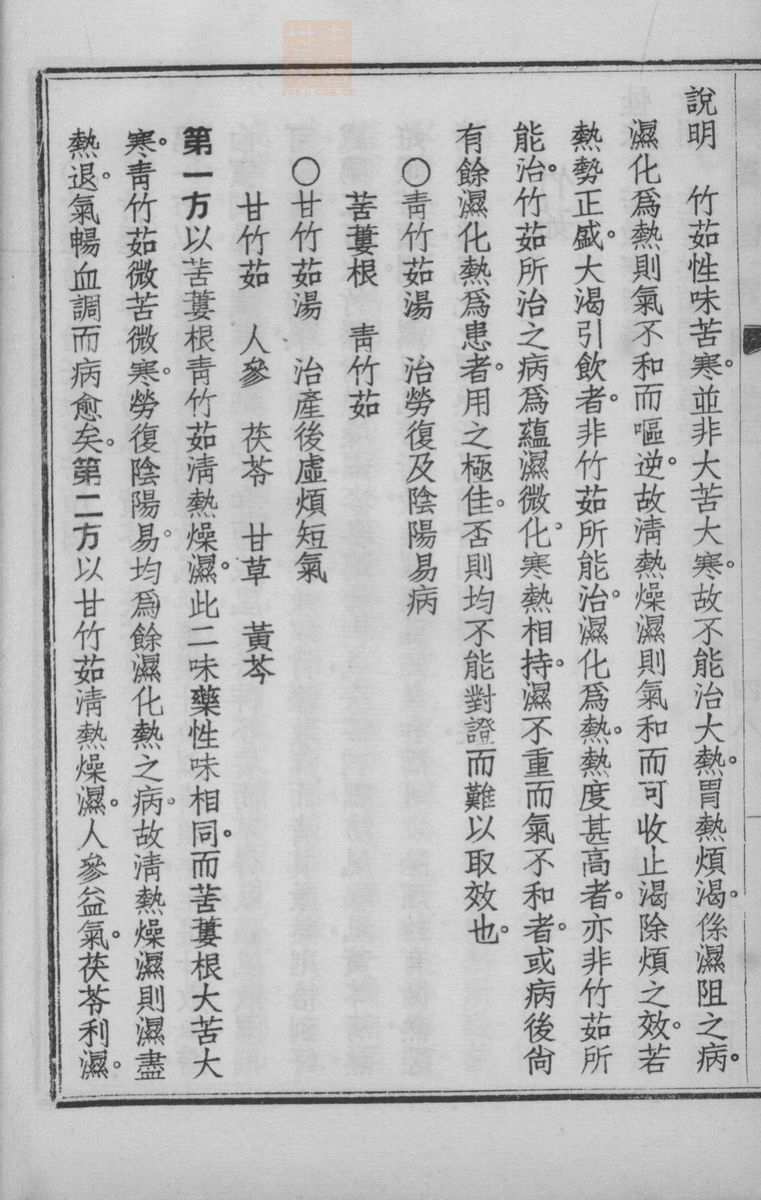 說明　竹茹性味苦寒。並非大苦大寒。故不能治大熱。胃熱煩渴。係濕阻之病。
濕化爲熱則氣不和而嘔逆。故清熱燥濕則氣和而可收止渴除煩之效。若
熱勢正盛。大渴引飲者。非竹茹所能治。濕化爲熱。熱度甚高者。亦非竹茹所
能治。竹茹所治之病爲蘊濕微化。寒熱相持。濕不重而氣不和者。或病後尙
有餘濕化熱爲患者。用之極佳。否則均不能對證而難以取效也。
〇靑竹茹湯　治勞復及陰陽易病
苦蔞根　靑竹茹
〇甘竹茹湯　治產後虛煩短氣
甘竹茹　人參　茯苓　甘草　黃芩
第一方以苦蔞根靑竹茹淸熱燥濕。此二味藥性味相同。而苦蔞根大苦大
寒。靑竹茹微苦微寒。勞復陰陽易。均爲餘濕化熱之病。故淸熱燥濕則濕盡
熱退。氣暢血調而病愈矣。第二方以甘竹茹淸熱燥濕。人參益氣。茯苓利濕。
中
世
rysj.com.cn